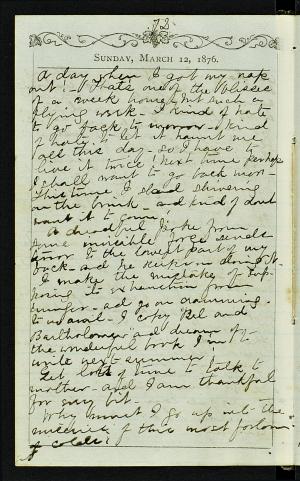 72
SUNDAY, MARCH 12, 1876.
A day when I got my nap
out! - That's one of the blisses
of a week home, but such a
flying week - I kind of hate
to go back to morrow - kind
of hate to let it haunt me
all this day - so I have to
live it twice! Next time perhaps
I shall want to go back more -
This time I stand shivering
on the brink - and kind of don't
want it to come!
A dreadful poke from
some invisible force sends
to the lowest part of my
back - and he keeps on doing it.
I make the mistake of sup-
posing to exhaustion from
hunger - and go on cramming -
to no avail - I copy Bel and
Bartholomew and dream of
the wonderful book I may
write next summer!
Get lots of time to talk to
mother - and I am thankful
for every bit -
Why must I go up into the
miseries of this most forlorn
of colds!